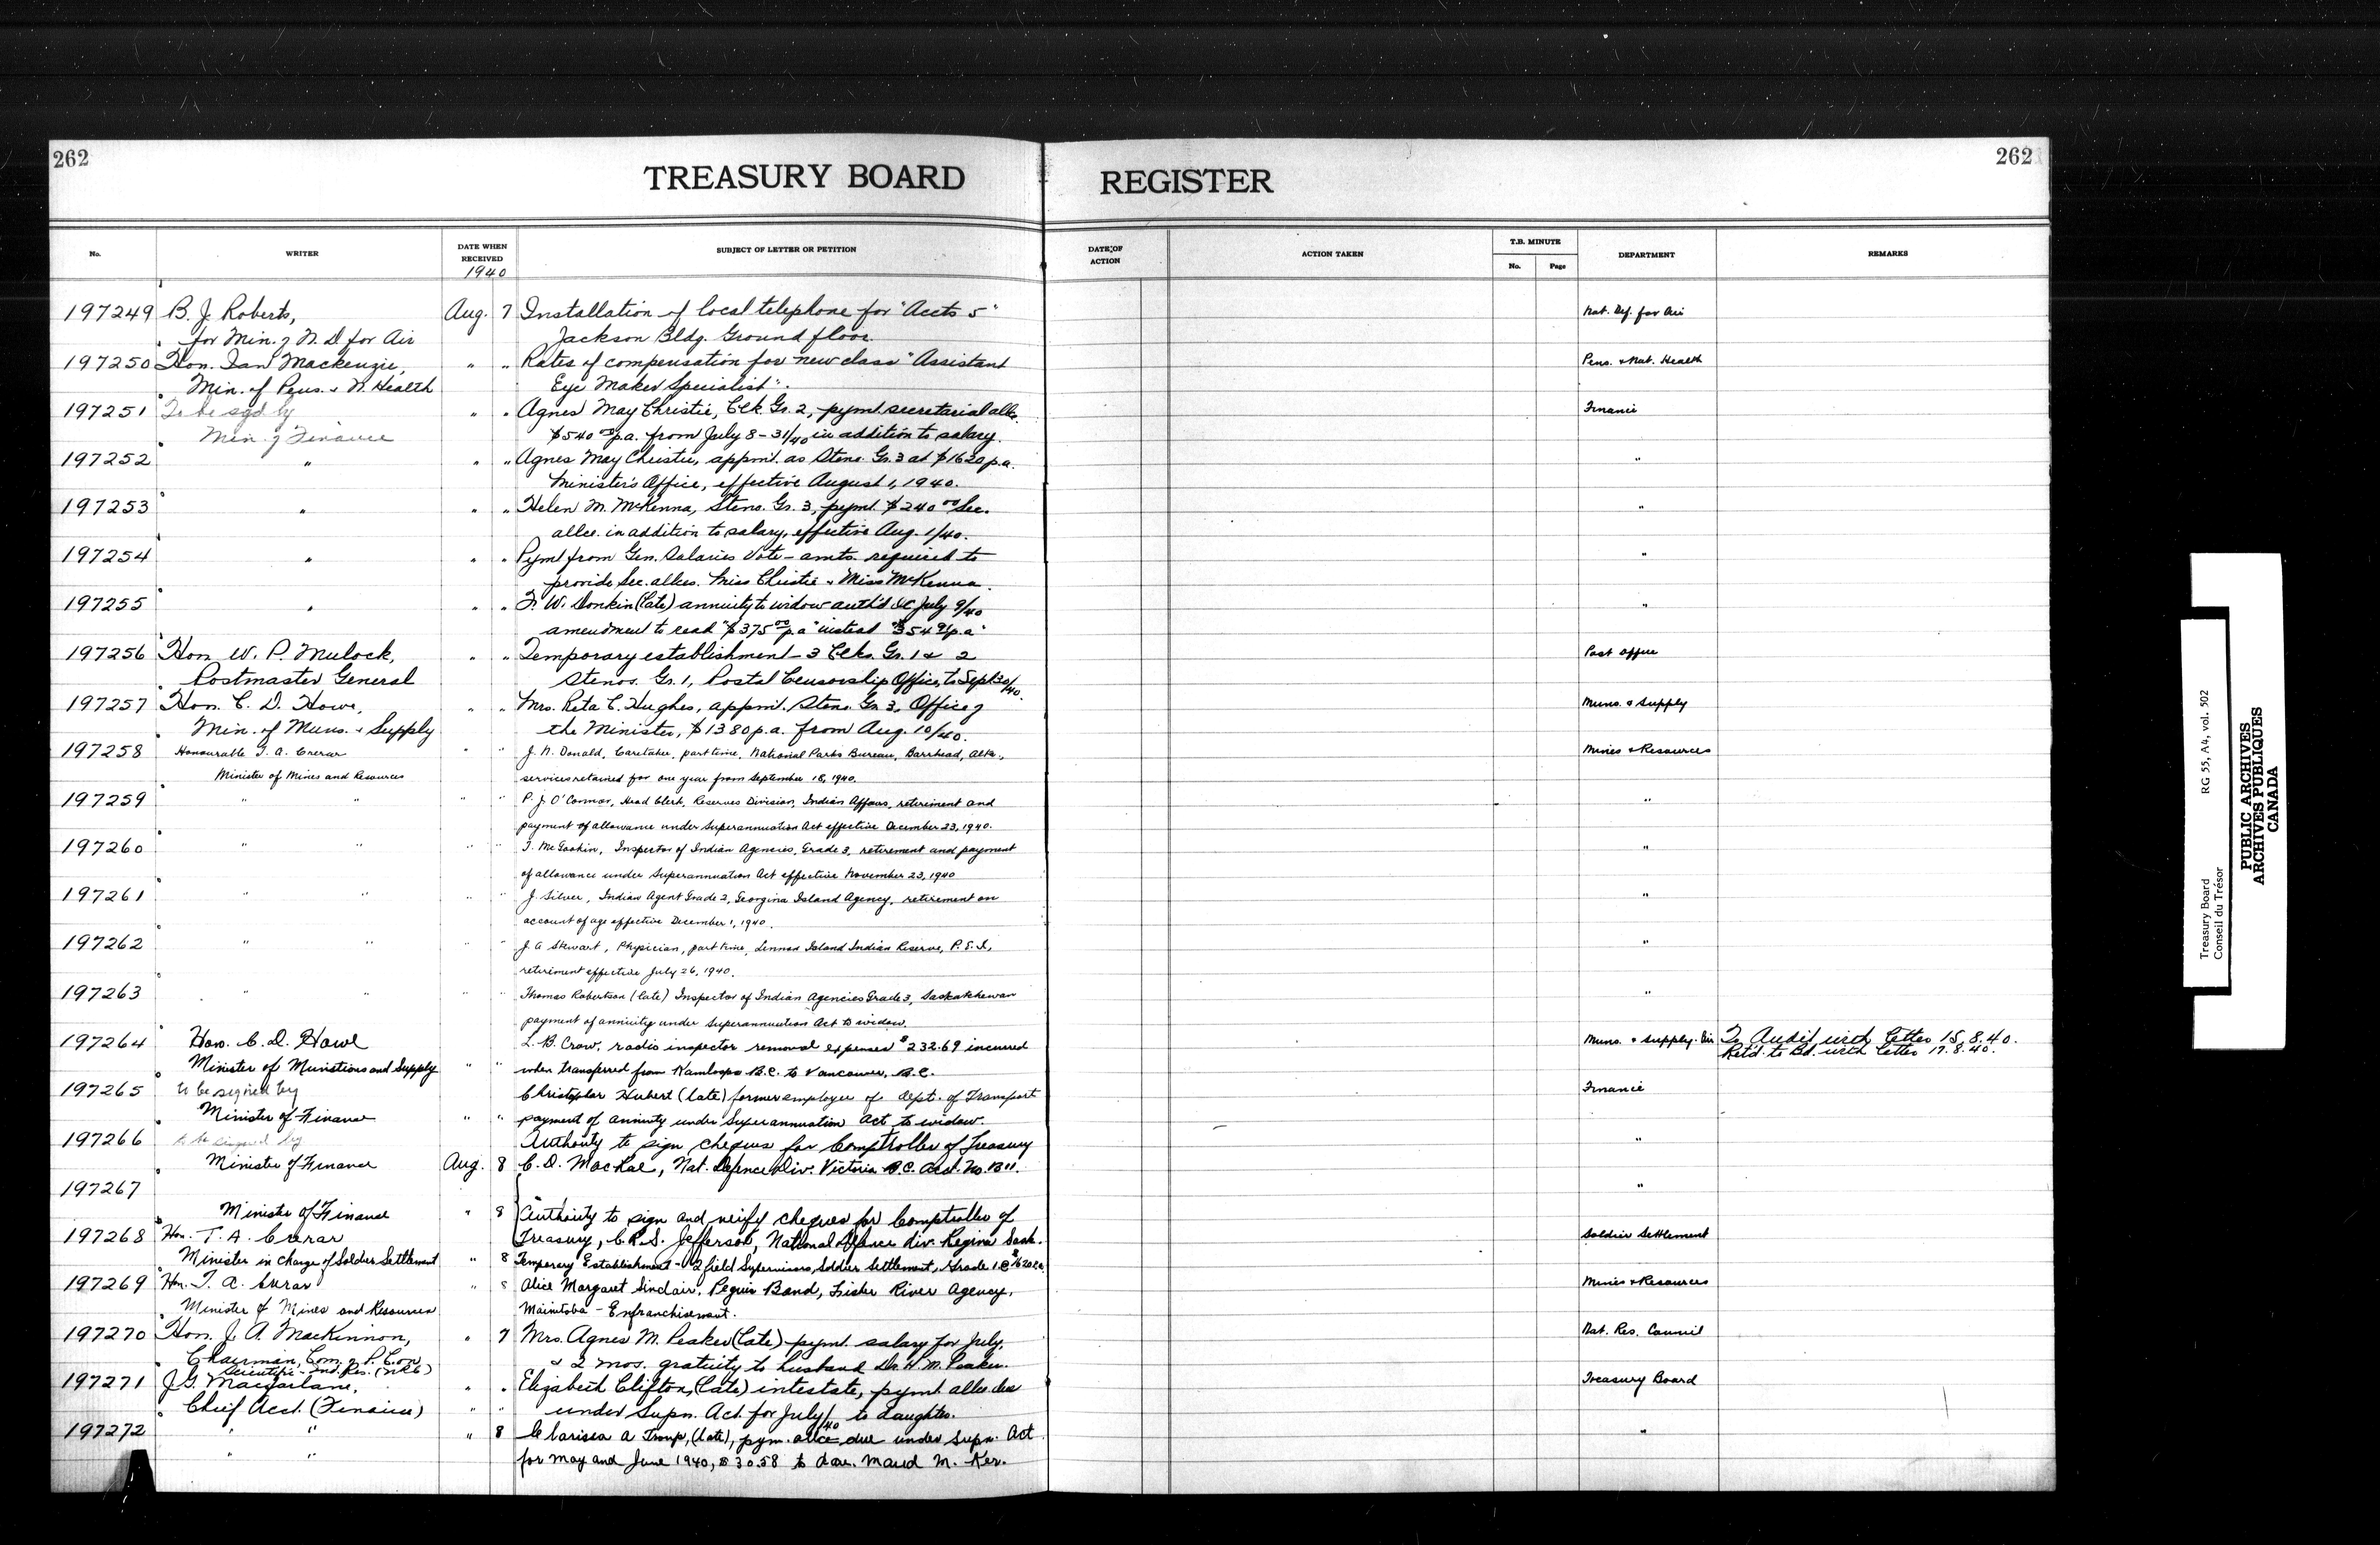 262
TREASURY BOARD REGISTER
262
No.
WRITER
DATE WHEN RECEIVED
1940
SUBJECT OF LETTER OR PETITION
DATE OF ACTION
ACTION TAKEN
T.B. MINUTE
No.
Page
DEPARTMENT
REMARKS
197249 B. J. Roberts, Aug. 7 Installation of local telephone for "Accts 5" Nat. Def. for Air
for Min. of N. D. for Air Jackson Bldg. Ground floor.
197250 Hon. Ian Mackenzie, " " Rates of compensation for new class "Assistant Pens. & Nat. Health
Min. of Pens. & N. Health Eye Maker Specialist".
197251 To be sgd by " " Agnes May Christie, Clk. Gr. 2, pymt. secretarial allce. Finance
Min. of Finance $540.00 p.a. from July 8-31/40 in addition to salary.
197252 " " " Agnes May Christie, appmt. as Steno. Gr. 3 at $1620 p.a. "
Minister's Office, effective August 1, 1940.
197253 " " " Helen M. McKenna, Steno. Gr. 3, pymt. $240.00 Sec. "
allce. in addition to salary, effective Aug. 1/40.
197254 " " " Pymt from Gen. Salaries Vote - amts. required to "
provide Sec. allces. Miss Christie & Miss McKenna.
197255 " " " F. W. Donkin (late) annuity to widow auth'd July 9/40 "
amendment to read "$375.00 p.a" instead "$354.96 p.a"
197256 Hon. W. P. Mulock, " " Temporary establishment - 3 Clks. Gr. 1 & 2 Post Office
Postmaster General Stenos. Gr. 1, Postal Censorship Office, to Sept 30/40.
197257 Hon. C. D. Howe, " " Mrs. Reta C. Hughes, appmt. Steno. Gr. 3, Office of Muns. & Supply
Min. of Muns. & Supply the Minister, $1380 p.a. from Aug. 10/40.
197258 Honourable T. A. Crerar " " J. N. Donald, Caretaker, part time, National Parks Bureau, Barrhead, Alta., Mines & Resources
Minister of Mines and Resources services retained for one year from September 18, 1940.
197259 " " " " P. J. O'Connor, Head Clerk, Reserves Division, Indian Affairs, retirement and "
payment of allowance under Superannuation Act effective December 23, 1940.
197260 " " " " T. McGookin, Inspector of Indian Agencies, Grade 3, retirement and payment "
of allowance under Superannuation Act effective November 23, 1940
197261 " " " " J. Silver, Indian Agent Grade 2, Georgina Island Agency, retirement on "
account of age effective December 1, 1940.
197262 " " " " J. A. Stewart, Physician, part time, Lennox Island Indian Reserve, P. E. I., "
retirement effective July 26, 1940.
197263 " " " " Thomas Robertson (late) Inspector of Indian Agencies Grade 3, Saskatchewan "
payment of annuity under Superannuation Act to widow.
197264 Hon. C. D. Howe L. B. Crow, radio inspector removal expenses $232.69 incurred Muns. & Supply. Air To Audit with letter 15.8.40.
Minister of Munitions and Supply " " when transferred from Kamloops B.C. to Vancouver, B.C. Ret'd. to Bd. with letter 17.8.40.
197265 to be signed by Christopher Hubert (late) former employee of Dept. of Transport Finance
Minister of Finance " " payment of annuity under Superannuation Act to widow.
197266 to be signed by Authority to sign cheques for Comptroller of Treasury "
Minister of Finance Aug. 8 C. D. MacRae, Nat. Defence Div. Victoria B.C. Acct. No. B11.
197267 "
Minister of Finance " 8 Authority to sign and verify cheques for Comptroller of
Treasury, C.R.S. Jefferson, National Defence Div. Regina Sask.
197268 Hon. T. A. Crerar Soldier Settlement
Minister in Charge of Soldier Settlement " 8 Temporary Establishment - 2 field Supervisors, Soldier Settlement, Grade 1 @ $1620 p.a.
197269 Hon. T. A. Crerar " 8 Alice Margaret Sinclair, Peguis Band, Fisher River Agency, Mines & Resources
Minister of Mines and Resources Manitoba - Enfranchisement.
197270 Hon. J. A. MacKinnon, " 7 Mrs. Agnes M. Peaker (Late) pymt. salary for July, Nat. Res. Council
Chairman, Com. of P. C. on & 2 mos. gratuity to husband Dr. W. M. Peaker.
Scientific & Ind. Res. (NRC)
197271 J. G. Macfarlane, " " Elizabeth Clifton, (late) intestate, pymt. allce due Treasury Board
Chief Acct. (Finance) " " under Supn. Act. for July/40 to daughter.
197272 " " " 8 Clarissa A Troup, (late), pym. allce due under Supn. Act "
" " for May and June 1940, $30.58 to dau. Maud M. Ker.
Treasury Board RG 55, A4, vol. 502
Conseil du Trésor
PUBLIC ARCHIVES
ARCHIVES PUBLIQUES
CANADA